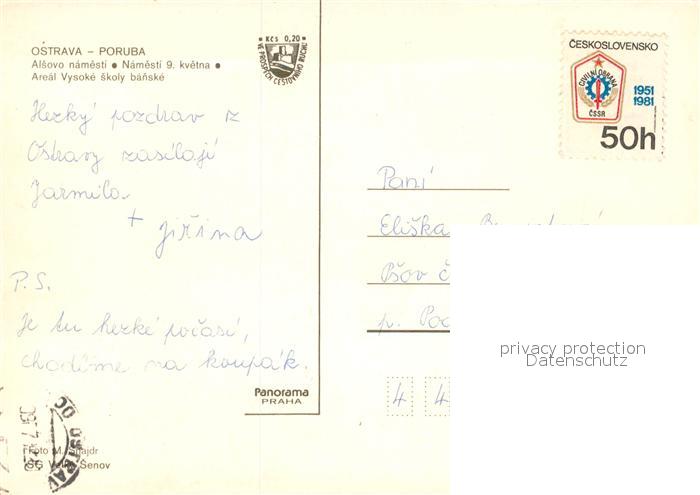 OSTRAVA – PORUBA
Alšovo náměstí ● Náměstí 9. května ●
Areál Vysoké školy báňské
Kčs 0,20
VE PROSPĚCH CESTOVNÍHO RUCHU
ČESKOSLOVENSKO
CIVILNÍ OBRANA
ČSSR
1951
1981
50h
Hezký pozdrav z
Ostravy zasílají
Jarmila
+ Jiřina
P.S.
Je tu hezké počasí,
chodíme na koupák.
Paní
Eliška
Pšov č
p. Pod
4 4
privacy protection
Datenschutz
Panorama
PRAHA
Foto M. Šnajdr
SG Velký Šenov